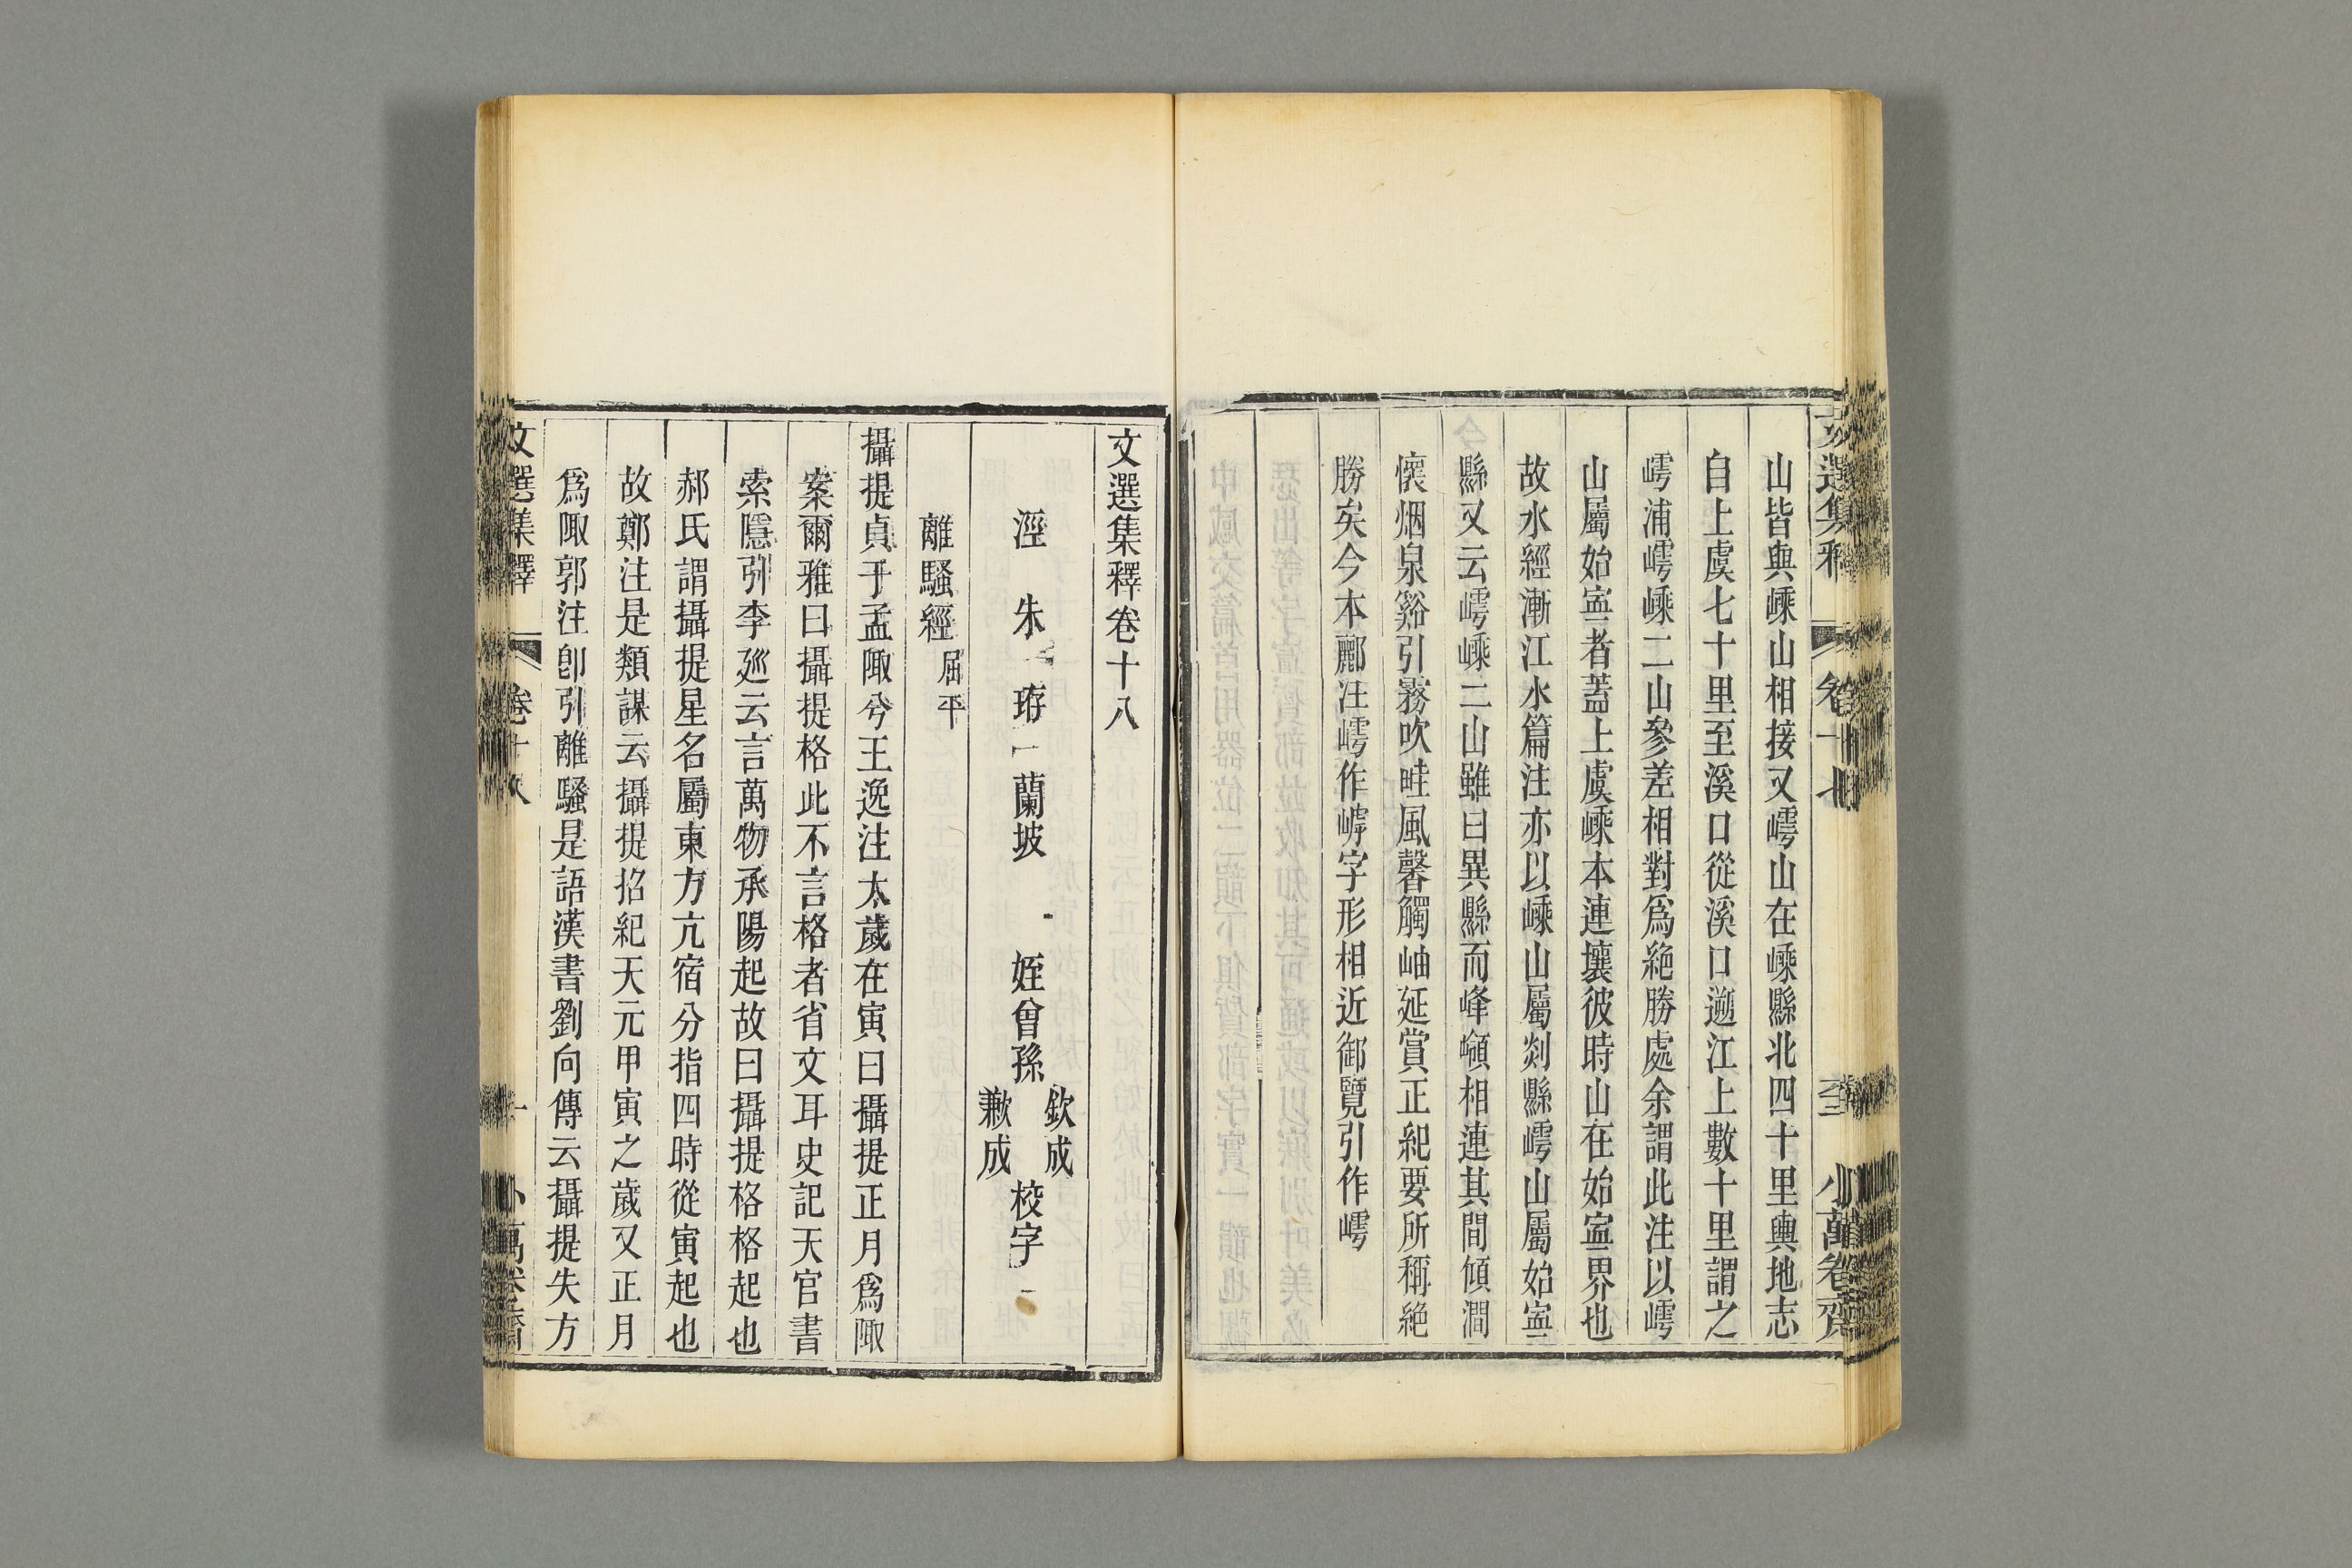 山皆與嵊山相接又嶀山在嵊縣北四十里輿地志
自上虞七十里至溪口從溪口遡江上數十里謂之
嶀浦嶀嵊二山參差相對爲絶勝處余謂此注以嶀
山屬始寍者蓋上虞嵊本連壤彼時山在始寍界也
故水經漸江水篇注亦以嵊山屬剡縣嶀山屬始寍
縣又云嶀嵊二山雖曰異縣而峰嶺相連其間傾澗
懷烟泉谿引霧吹畦風馨觸岫延賞正紀要所稱絶
勝矣今本酈注嶀作㟯字形相近御覽引作嶀
文選集釋卷十八
涇 朱珔蘭坡 姪曾孫 欽成 歉成 校字
離騷經 屈平
攝提貞于孟陬兮王逸注太歲在寅曰攝提正月爲陬
案爾雅曰攝提格此不言格者省文耳史記天官書
索隱引李巡云言萬物承陽起故曰攝提格格起也
郝氏謂攝提星名屬東方亢宿分指四時從寅起也
故鄭注是類謀云攝提招紀天元甲寅之歲又正月
爲陬郭注卽引離騷是語漢書劉向傳云攝提失方
文選集釋 卷十八 一 小萬卷齋